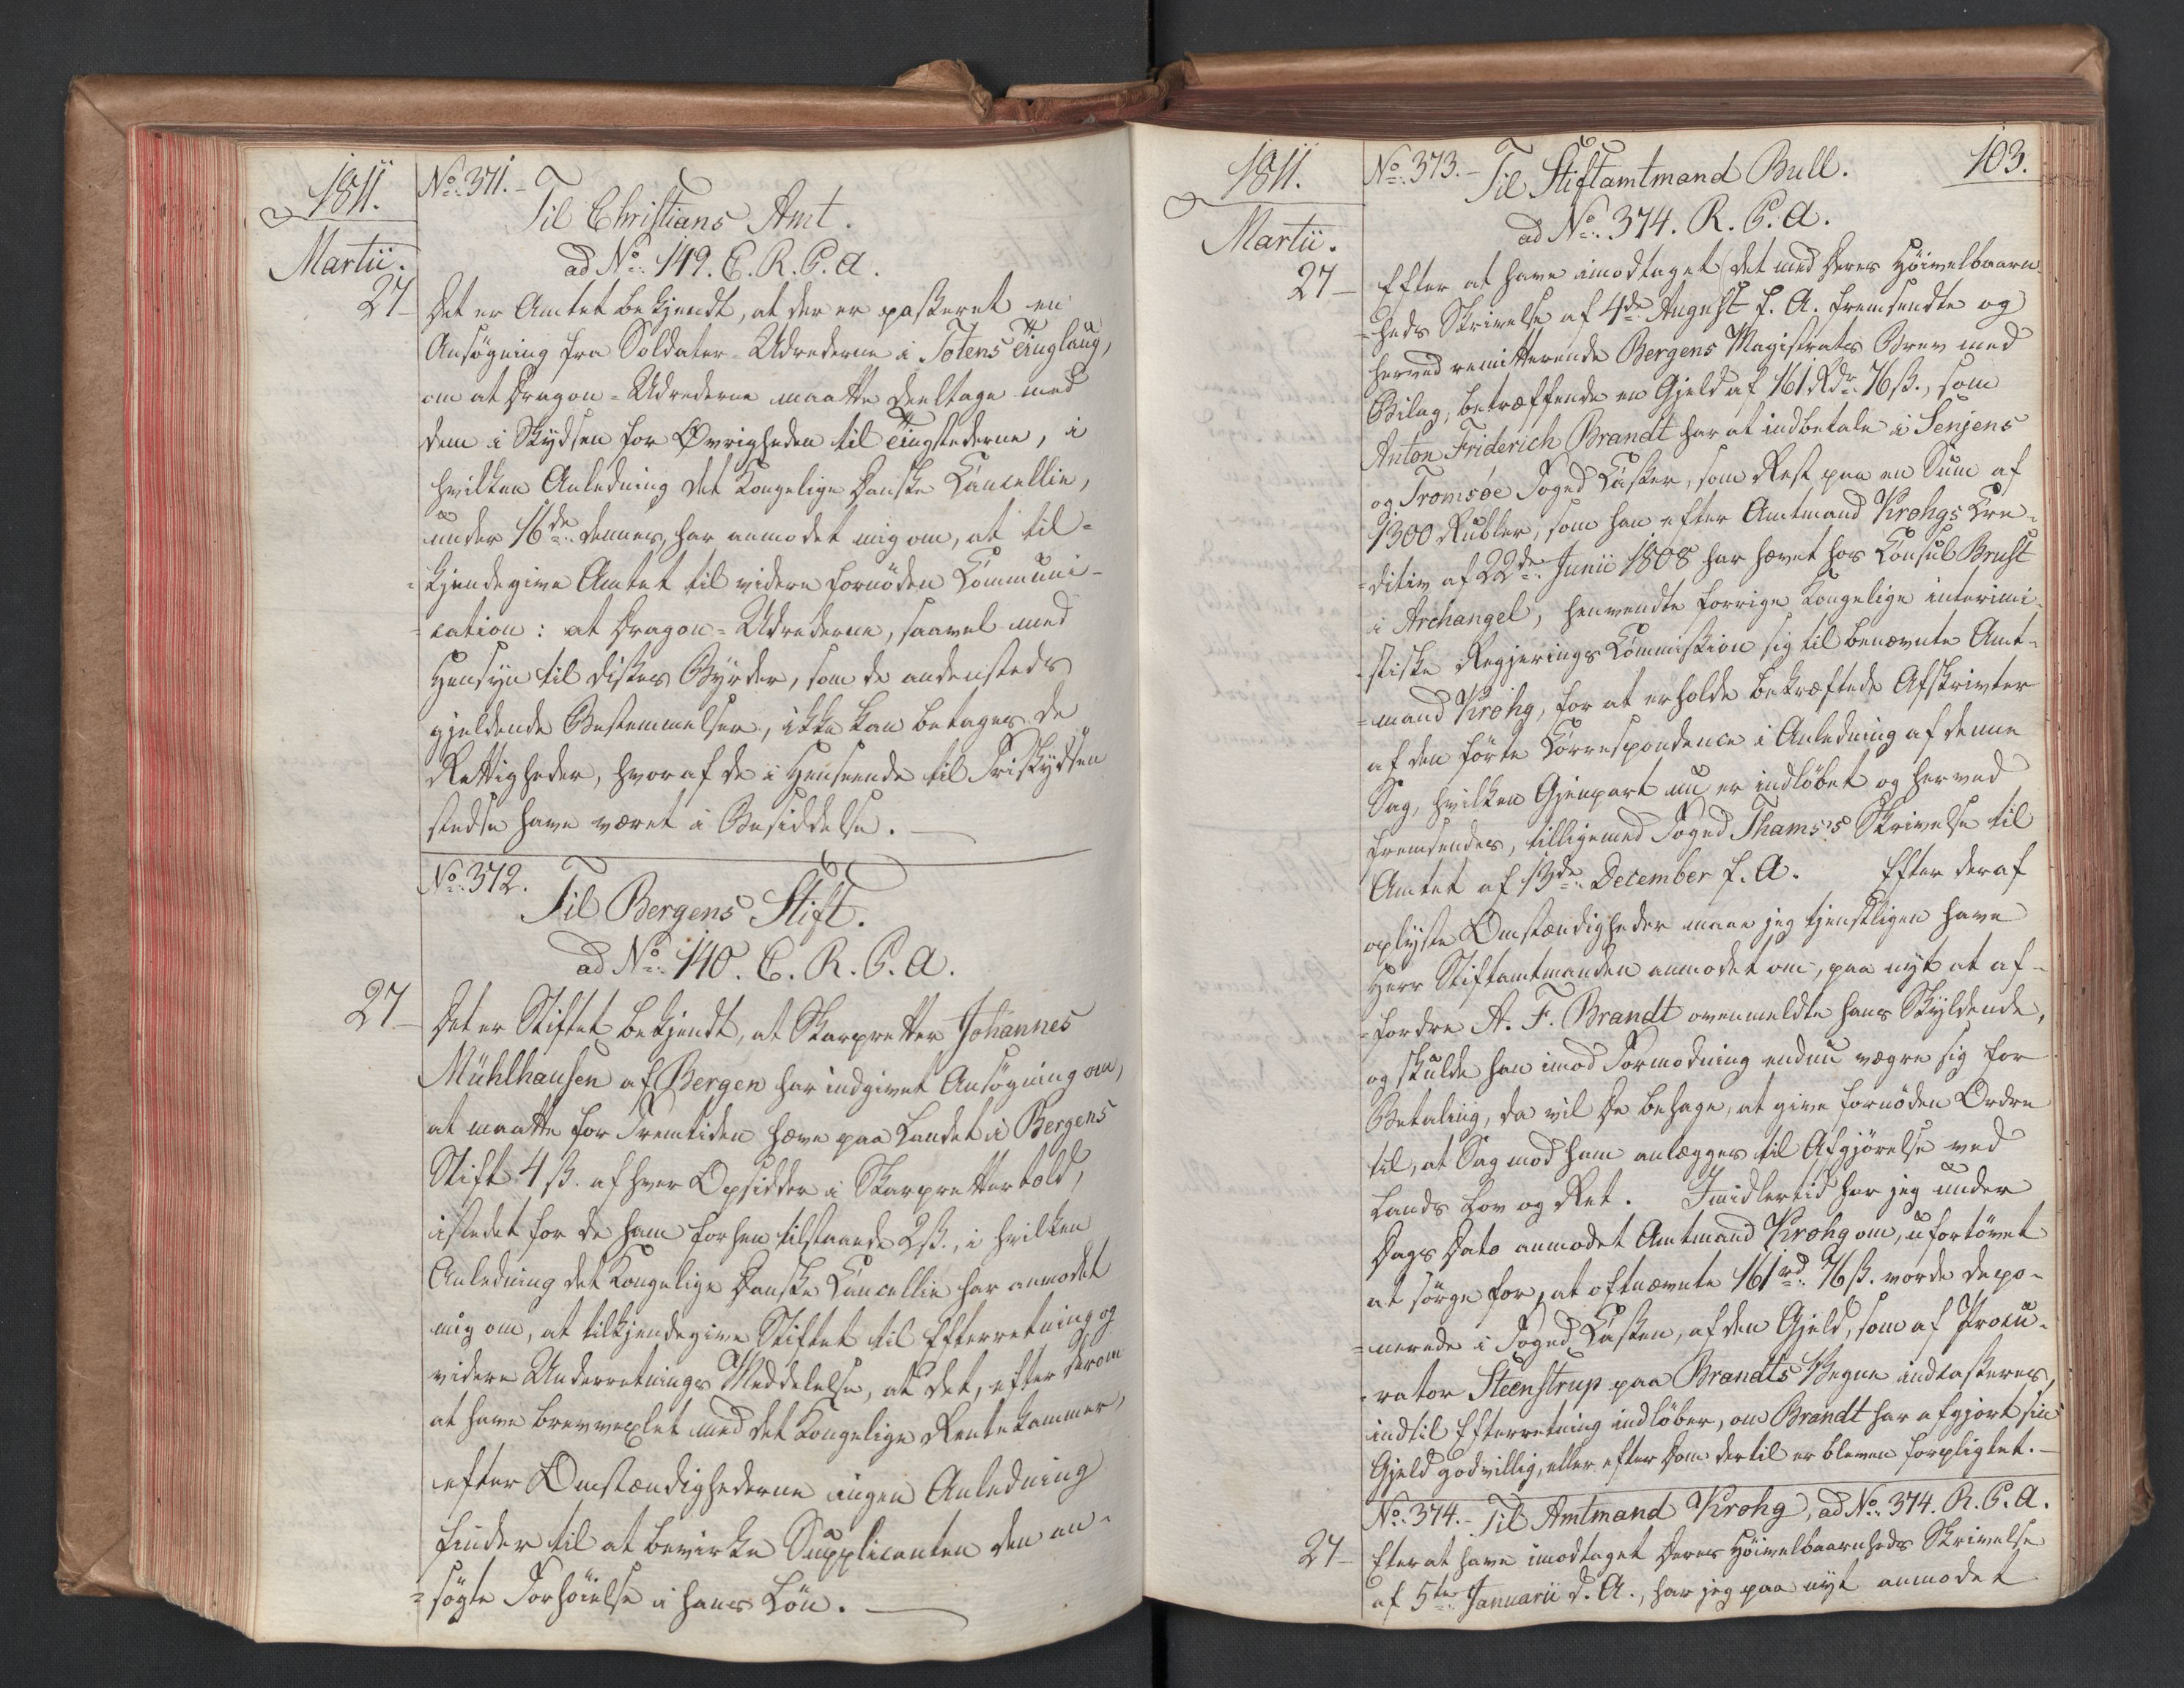 1811.
No. 371.-
Til Christians Amt.
Martii.
ad No. 149. C. R. P. A.
27- Det er Amtet bekjendt, at der er passeret en
Ansøgning fra Soldater-Udrederne i Totens Tinglaug,
om at Dragon-Udrederne maatte deeltage med
dem i Skydsen for Øvrigheden til Tingstederne, i
hvilken Anledning det Kongelige Danske Cancellie,
under 16de dennes, har anmodet mig om, at til-
-kjendegive Amtet til videre fornøden Communi-
-cation: at Dragon-Udrederne, saavel med
Hensyn til disses Byrder, som de andensteds
gjeldende Bestemmelser, ikke kan betages de
Rettigheder, hvoraf de i Henseende til Friskydsen
stedse have været i Besiddelse.
No. 372.
Til Bergens Stift.
ad No. 140. C. R. P. A.
27- Det er Stiftet bekjendt, at Skarpretter Johannes
Mühlhausen af Bergen har indgivet Ansøgning om,
at maatte for Fremtiden hæve paa Landet i Bergens
Stift 4 ß. af hver Opsidder i Skarprettertold,
istedet for de ham forhen tilstaaede 2 ß., i hvilken
Anledning det Kongelige Danske Cancellie har anmodet
mig om, at tilkjendegive Stiftet til Efterretning og
videre Underretnings Meddelelse, at det, efter derom
at have brevvexlet med det Kongelige Rentekammer,
efter Omstændighederne ingen Anledning
finder til at bevirke Supplicanten den an-
-søgte Forhøielse i hans Løn.
1811.
No. 373.- Til Stiftamtmand Bull.
103.
Martii.
ad No. 374. R. P. A.
27- Efter at have imodtaget det med Deres Høivelbaarn-
-heds Skrivelse af 4de August f. A. fremsendte og
herved remitterende Bergens Magistrats Brev med
Bilag, betræffende en Gjeld af 161 Rdr. 76 ß., som
Anton Friderich Brandt har at indbetale i Senjens
og Tromsøe Foged Casser, som Rest paa en Sum af
1300 Rubler, som han efter Amtmand Krohgs Cre-
-ditiv af 22de Junii 1808 har hævet hos Consul Brust
i Archangel, henvendte forrige Kongelige interimi-
-stiske Regjerings Commission sig til benævnte Amt-
-mand Krohg, for at erholde bekræftede Afskrivter
af den førte Correspondence i Anledning af denne
Sag, hvilken Gjenpart nu er indløbet og herved
fremsendes, tilligemed Foged Thams's Skrivelse til
Amtet af 13de December f. A. Efter deraf
oplyste Omstændigheder maae jeg tjenstligen have
Herr Stiftamtmanden anmodet om, paa nyt at af-
-fordre A. F. Brandt ovenmeldte hans Skyldende,
og skulde han imod Formodning endnu vægre sig for
Betaling, da vil De behage, at give fornøden Ordre
til, at Sag mod ham anlægges til Afgjørelse ved
Lands Lov og Ret. Imidlertid har jeg under
Dags Dato anmodet Amtmand Krohg om, ufortøvet
at sørge for, at oftnævnte 161 rd. 76 ß. vorde depo-
-nerede i Foged Cassen, af den Gjeld, som af Procu-
-rator Steenstrup paa Brandts Vegne indkasseres,
indtil Efterretning indløber, om Brandt har afgjort sin
Gjeld godvillig, eller efter Dom dertil er bleven forpligtet.-
No. 374.- Til Amtmand Krohg, ad No. 374. R. P. A.
27- Efter at have imodtaget Deres Høivelbaarnheds Skrivelse
af 5te Januarii d. A., har jeg paa nyt anmodet